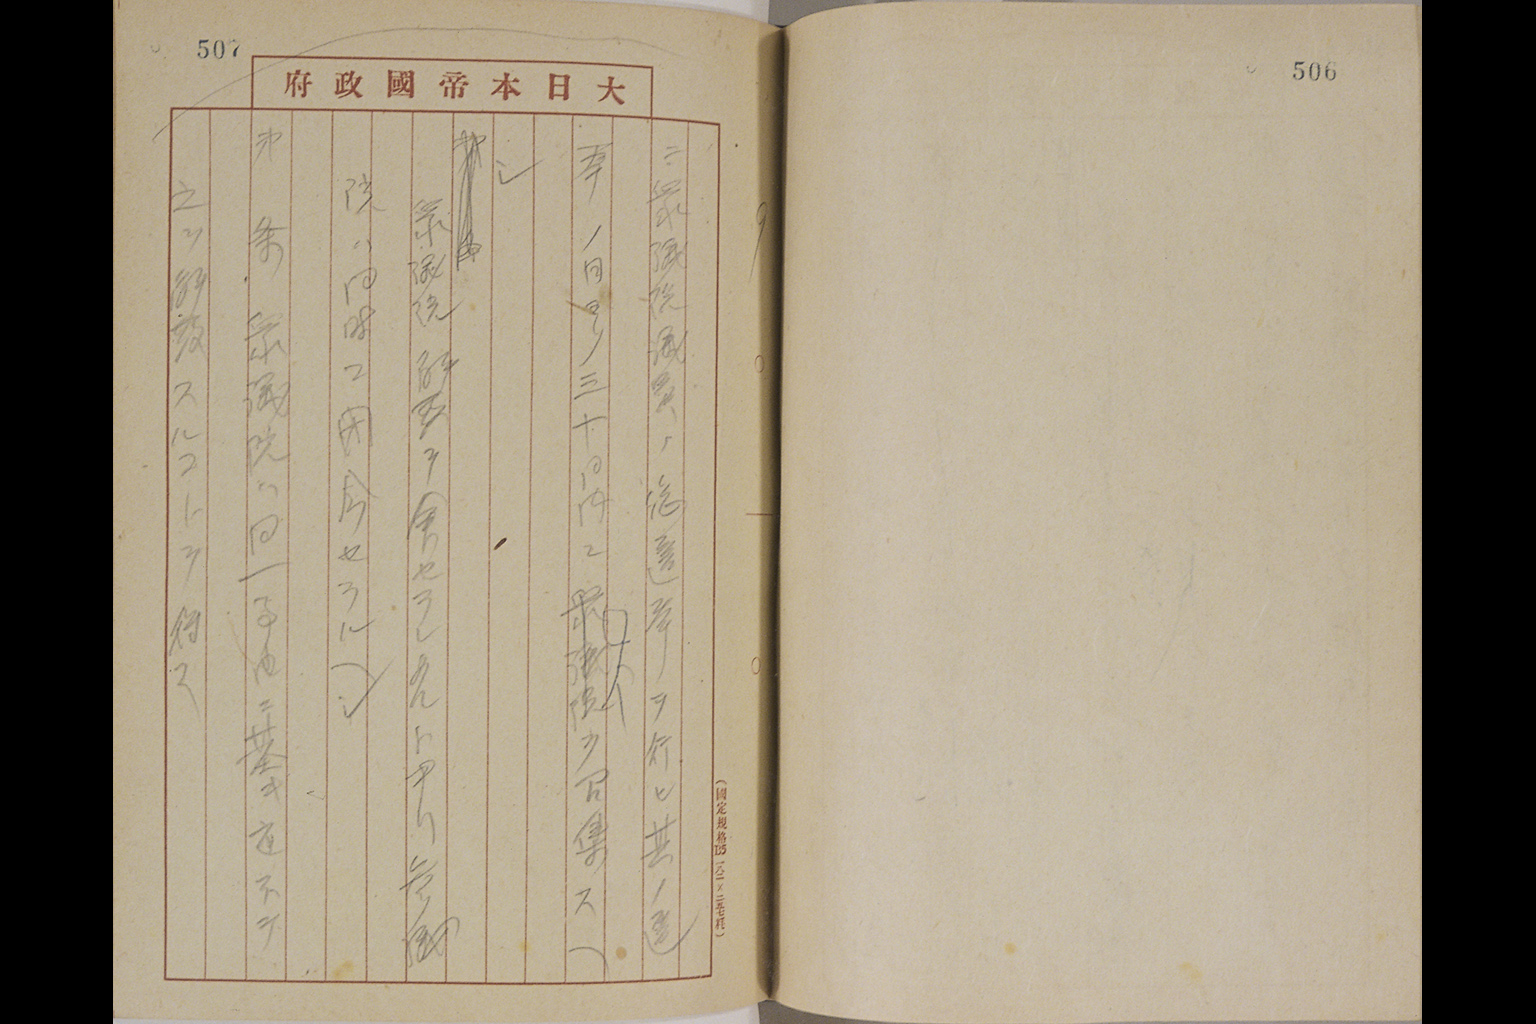 506
507
大日本帝國政府
ニ衆議院議員ノ総選挙ヲ行ヒ其ノ選
挙ノ日ヨリ三十日内ニ衆議院ヲ召集スヘ
シ
衆議院解散ヲ命セラレタルトキハ参議
院ハ同時ニ閉会セラルヘシ
第 条 衆議院ハ同一事由ニ基キ重ネテ
之ヲ解散スルコトヲ得ス
(國定規格B5 一八二×二五七粍)